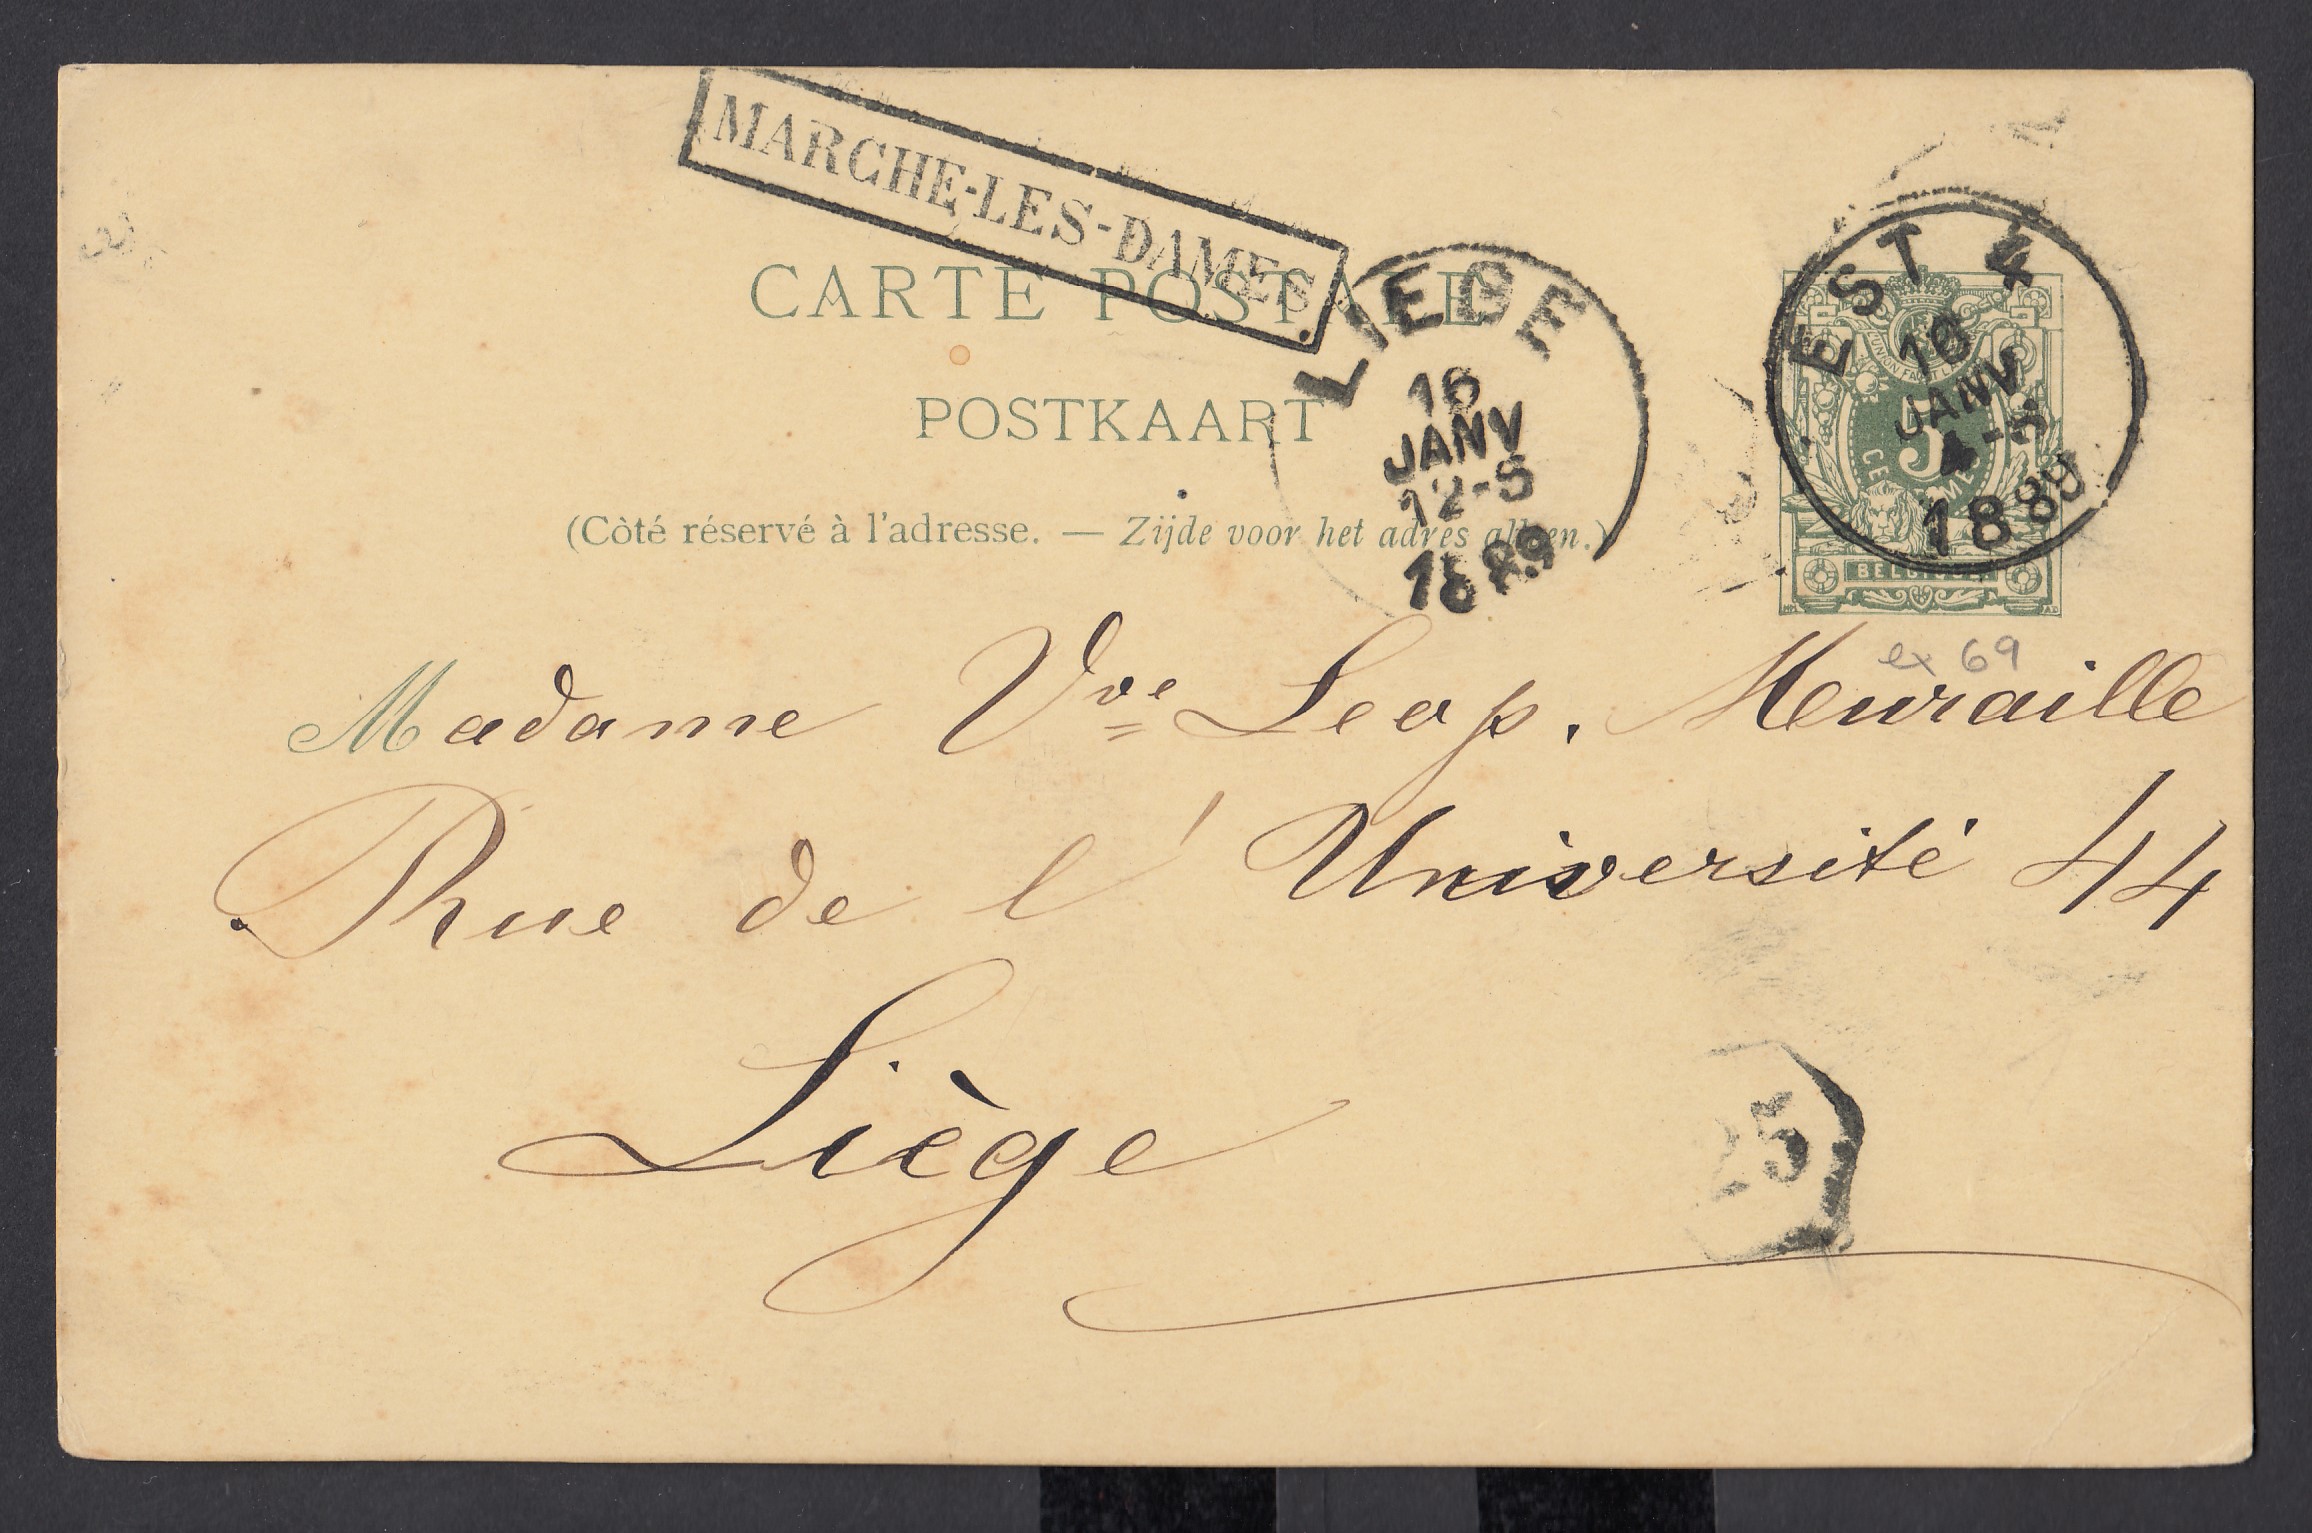 MARCHE-LES-DAMES
CARTE POSTALE
POSTKAART
(Côté réservé à l'adresse. — Zijde voor het adres alleen.)
LIEGE
16
JANV
12-S
1889
EST 4
16
JANV
4-S
1889
L'UNION FAIT LA
5
CENTIMES
BELGIQUE
ex 69
Madame Vve Leop. Meuraille
Rue de l'Université 44
Liège
25